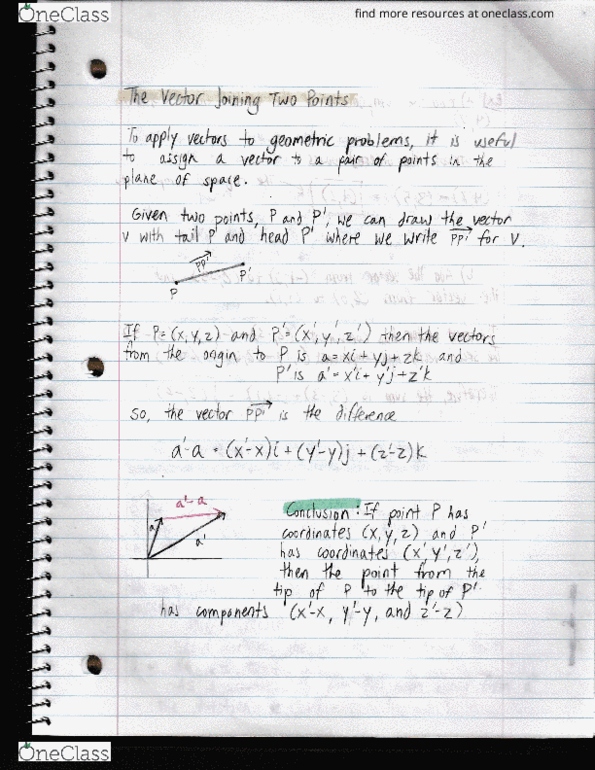 OneClass
find more resources at oneclass.com
The Vector Joining Two Points
To apply vectors to geometric problems, it is useful
to assign a vector to a pair of points in the
plane of space.
Given two points, P and P', we can draw the vector
v with tail P and head P' where we write PP' for v.
PP'
P'
P
If P=(x,y,z) and P'=(x',y',z') then the vectors
from the origin to P is a=xi+yj+zk and
P' is a'=x'i+y'j+z'k
So, the vector PP' is the difference
a'-a = (x'-x)i+(y'-y)j+(z'-z)k
a'-a
a
a'
Conclusion: If point P has
coordinates (x,y,z) and P'
has coordinates (x',y',z'),
then the point from the
tip of P to the tip of P'
has components (x'-x, y'-y, and z'-z)
OneClass